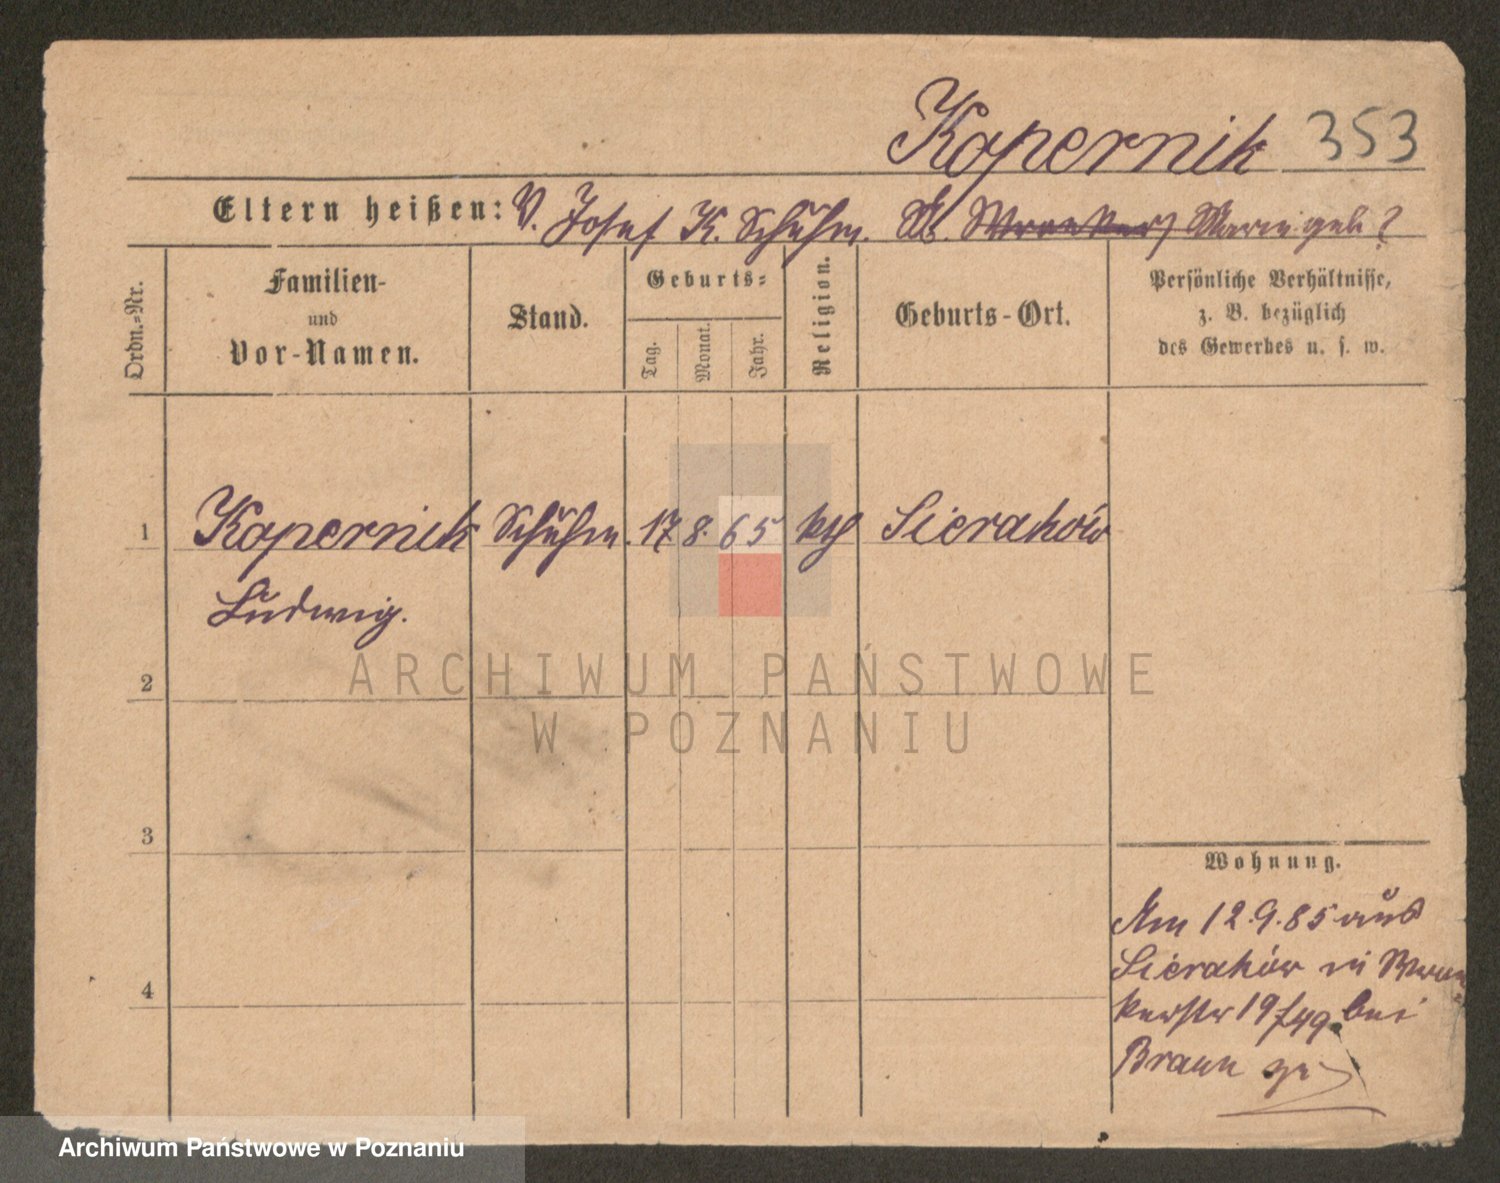 Kapernik 353
Eltern heißen: V. Josef K. Schuhm. M. Marie geb ?
Ordn.=Nr.
Familien-
und
Vor-Namen.
Stand.
Geburts=
Tag.
Monat.
Jahr.
Religion.
Geburts-Ort.
Persönliche Verhältnisse,
z. B. bezüglich
des Gewerbes u. s. w.
1 Kapernik Schuhm. 17 8. 65 kth Sieraków
Ludwig.
2
ARCHIWUM PAŃSTWOWE
W POZNANIU
3
Wohnung.
Am 12.9.85 aus
Sieraków in
4
19/49 bei
Braun
Archiwum Państwowe w Poznaniu